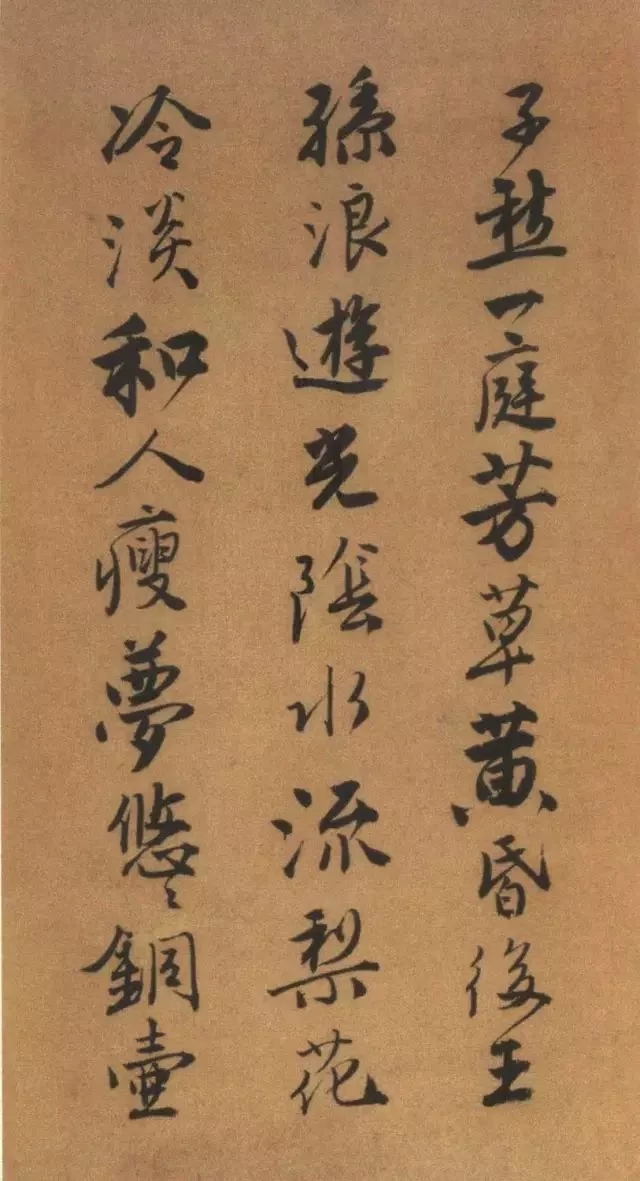 子愁一庭芳草黄昏後王
孫浪遊光陰水流梨花
冷淡和人瘦夢悠〻銅壺